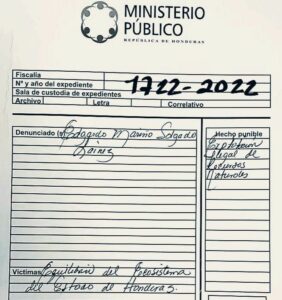 MINISTERIO
PÚBLICO
REPÚBLICA DE HONDURAS
Fiscalía
Nº y año del expediente 1722-2022
Sala de custodia de expedientes
Archivo Letra Correlativo
Denunciado (a) Edgardo Mauricio Salgado
Hecho punible
Explotacion
Ilegal de
Recursos
Naturales
Víctimas Equilibrio del Ecosistema
del Estado de Honduras.